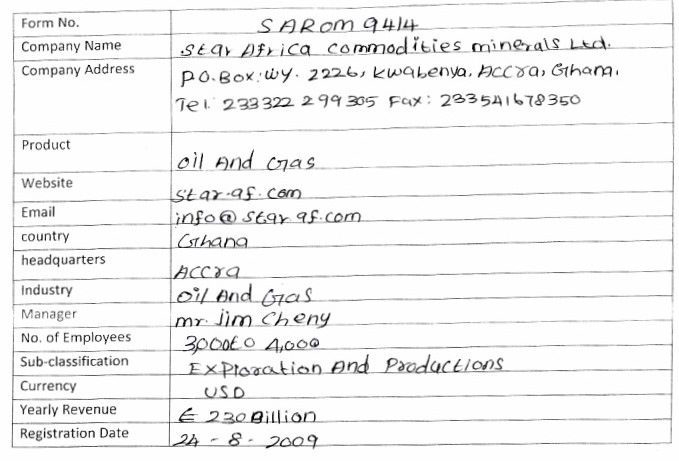 Form No. SAROM 9414
Company Name Star Africa commodities minerals Ltd.
Company Address P.O.Box: WY. 2226, Kwabenya, Accra, Ghana.
Tel: 233322 299305 Fax: 233541678350
Product Oil And Gas
Website Star-af.com
Email info@star-af.com
country Ghana
headquarters Accra
Industry Oil And Gas
Manager mr. Jim Cheny
No. of Employees 3,000to 4,000
Sub-classification Exploration And Productions
Currency USD
Yearly Revenue € 230 Billion
Registration Date 24 - 8 - 2009